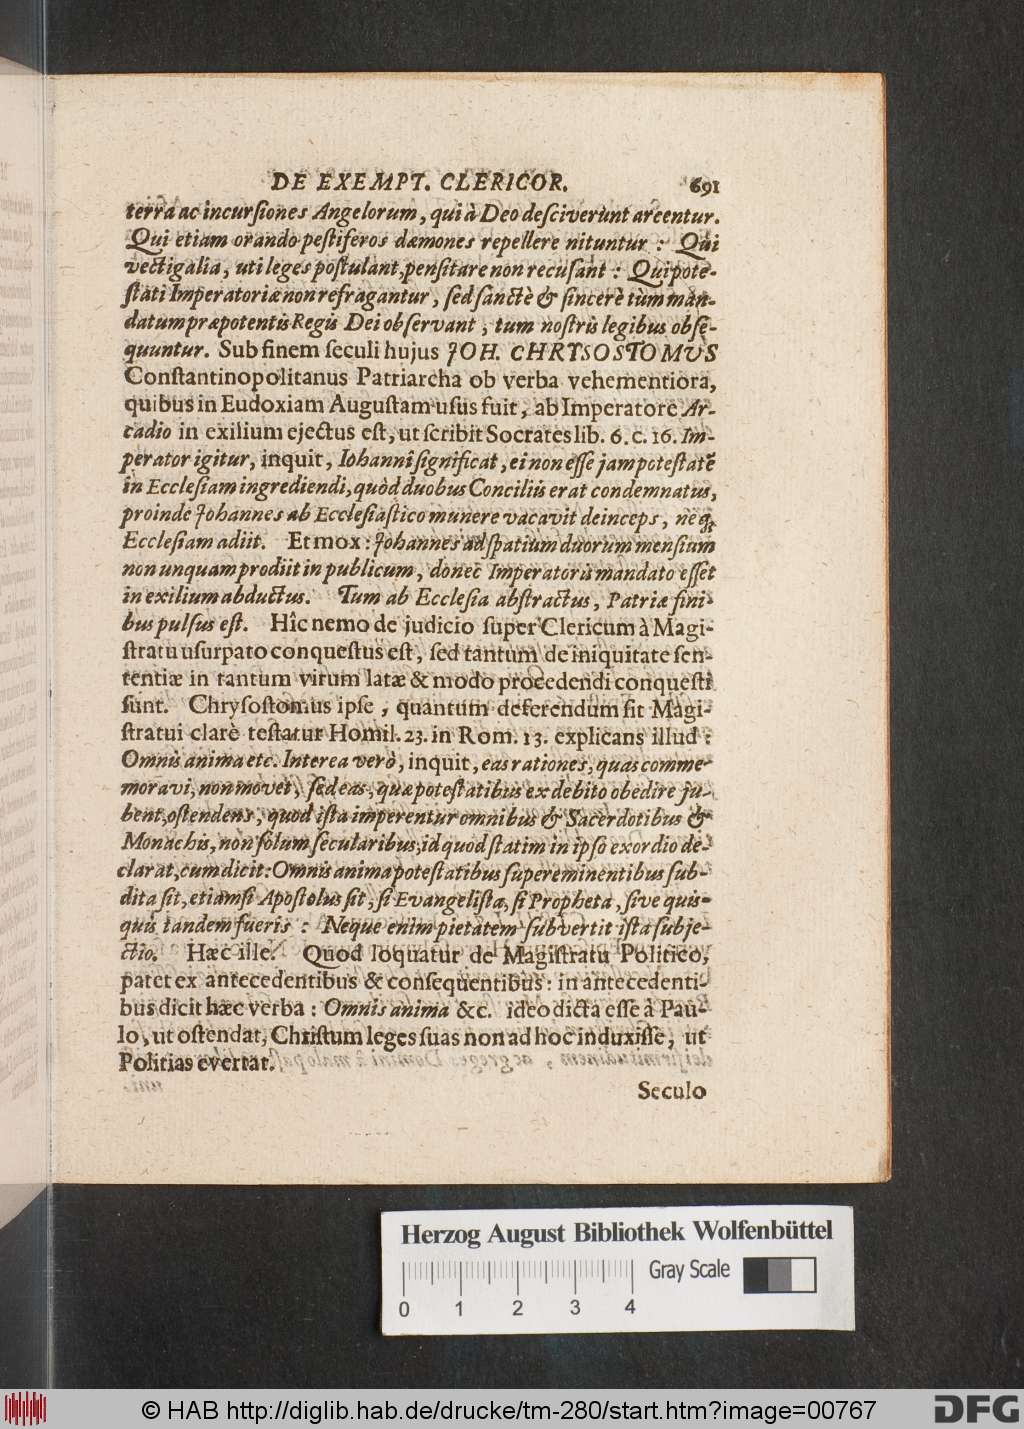 DE EXEMPT. CLERICOR. 691
terra ac incurſiones Angelorum, qui à Deo deſciverunt arcentur.
Qui etiam orando peſtiferos dæmones repellere nituntur : Qui
vectigalia, uti leges poſtulant, penſitare non recuſant : Qui pote-
ſtati Imperatoriæ non refragantur, ſed ſanctè & ſincerè tùm man-
datum præpotentis Regis Dei obſervant, tum noſtris legibus obſe-
quuntur. Sub finem ſeculi hujus JOH. CHRYSOSTOMUS
Conſtantinopolitanus Patriarcha ob verba vehementiora,
quibus in Eudoxiam Auguſtam uſus fuit, ab Imperatore Ar-
cadio in exilium ejectus eſt, ut ſcribit Socrates lib. 6. c. 16. Im-
perator igitur, inquit, Iohanni ſignificat, ei non eſſe jam poteſtatē
in Eccleſiam ingrediendi, quòd duobus Conciliis erat condemnatus,
proinde Johannes ab Eccleſiaſtico munere vacavit deinceps, neq;
Eccleſiam adiit. Et mox: Johannes ad ſpatium duorum menſium
non unquam prodiit in publicum, donec Imperatoris mandato eſſet
in exilium abductus. Tum ab Eccleſia abſtractus, Patriæ fini-
bus pulſus eſt. Hîc nemo de judicio ſuper Clericum à Magi-
ſtratu uſurpato conqueſtus eſt, ſed tantum de iniquitate ſen-
tentiæ in tantum virum latæ & modo procedendi conqueſti
ſunt. Chryſoſtomus ipſe, quantum deferendum ſit Magi-
ſtratui clarè teſtatur Homil. 23. in Rom. 13. explicans illud :
Omnis anima etc. Interea verò, inquit, eas rationes, quas comme-
moravi, non movet, ſed eas, quæ poteſtatibus ex debito obedire ju-
bent, oſtendens, quod iſta imperentur omnibus & Sacerdotibus &
Monachis, non ſolum ſecularibus, id quod ſtatim in ipſo exordio de-
clarat, cum dicit: Omnis anima poteſtatibus ſupereminentibus ſub-
dita ſit, etiamſi Apoſtolus ſit, ſi Evangeliſta, ſi Propheta, ſive quis-
quis tandem fueris : Neque enim pietatem ſubvertit iſta ſubje-
ctio. Hæc ille. Quod loquatur de Magiſtratu Politico,
patet ex antecedentibus & conſequentibus: in antecedenti-
bus dicit hæc verba : Omnis anima &c. ideo dicta eſſe à Pau-
lo, ut oſtendat, Chriſtum leges ſuas non ad hoc induxiſſe, ut
Politias evertat.
Seculo
Herzog August Bibliothek Wolfenbüttel
Gray Scale
0 1 2 3 4
© HAB http://diglib.hab.de/drucke/tm-280/start.htm?image=00767
DFG